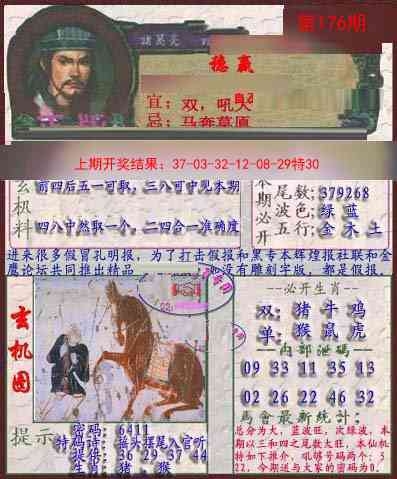 第176期
諸葛亮
稳赢
宜：双，吼天
忌：马奔草原
上期开奖结果：37-03-32-12-08-29特30
玄极料
前四后五一可取，三八可中见本期
四八中然取一个，二四合一准确度
本期必开
尾数；379268
波色；绿 蓝
五行；金 木 土
进来很多假冒孔明报，为了打击假报和黑专本辉煌报社联和金
鹰论坛共同推出精品 没有雕刻字版，都是假报，
玄机图
--必开生肖--
双：猪 牛 鸡
单：猴 鼠 虎
内部泄码
09 33 11 35 13
02 26 22 46 32
馬會最新統計：
总分为大，蓝波旺，次绿波，本
期以三和四之尾数大旺，本仙机
特如下推介，吼够号码两个：5
22，今期送与大家的密码为0。
提示
密码：6411
特码诗：摇头摆尾入官听
提供：36 29 37 44
生肖：猪，猴